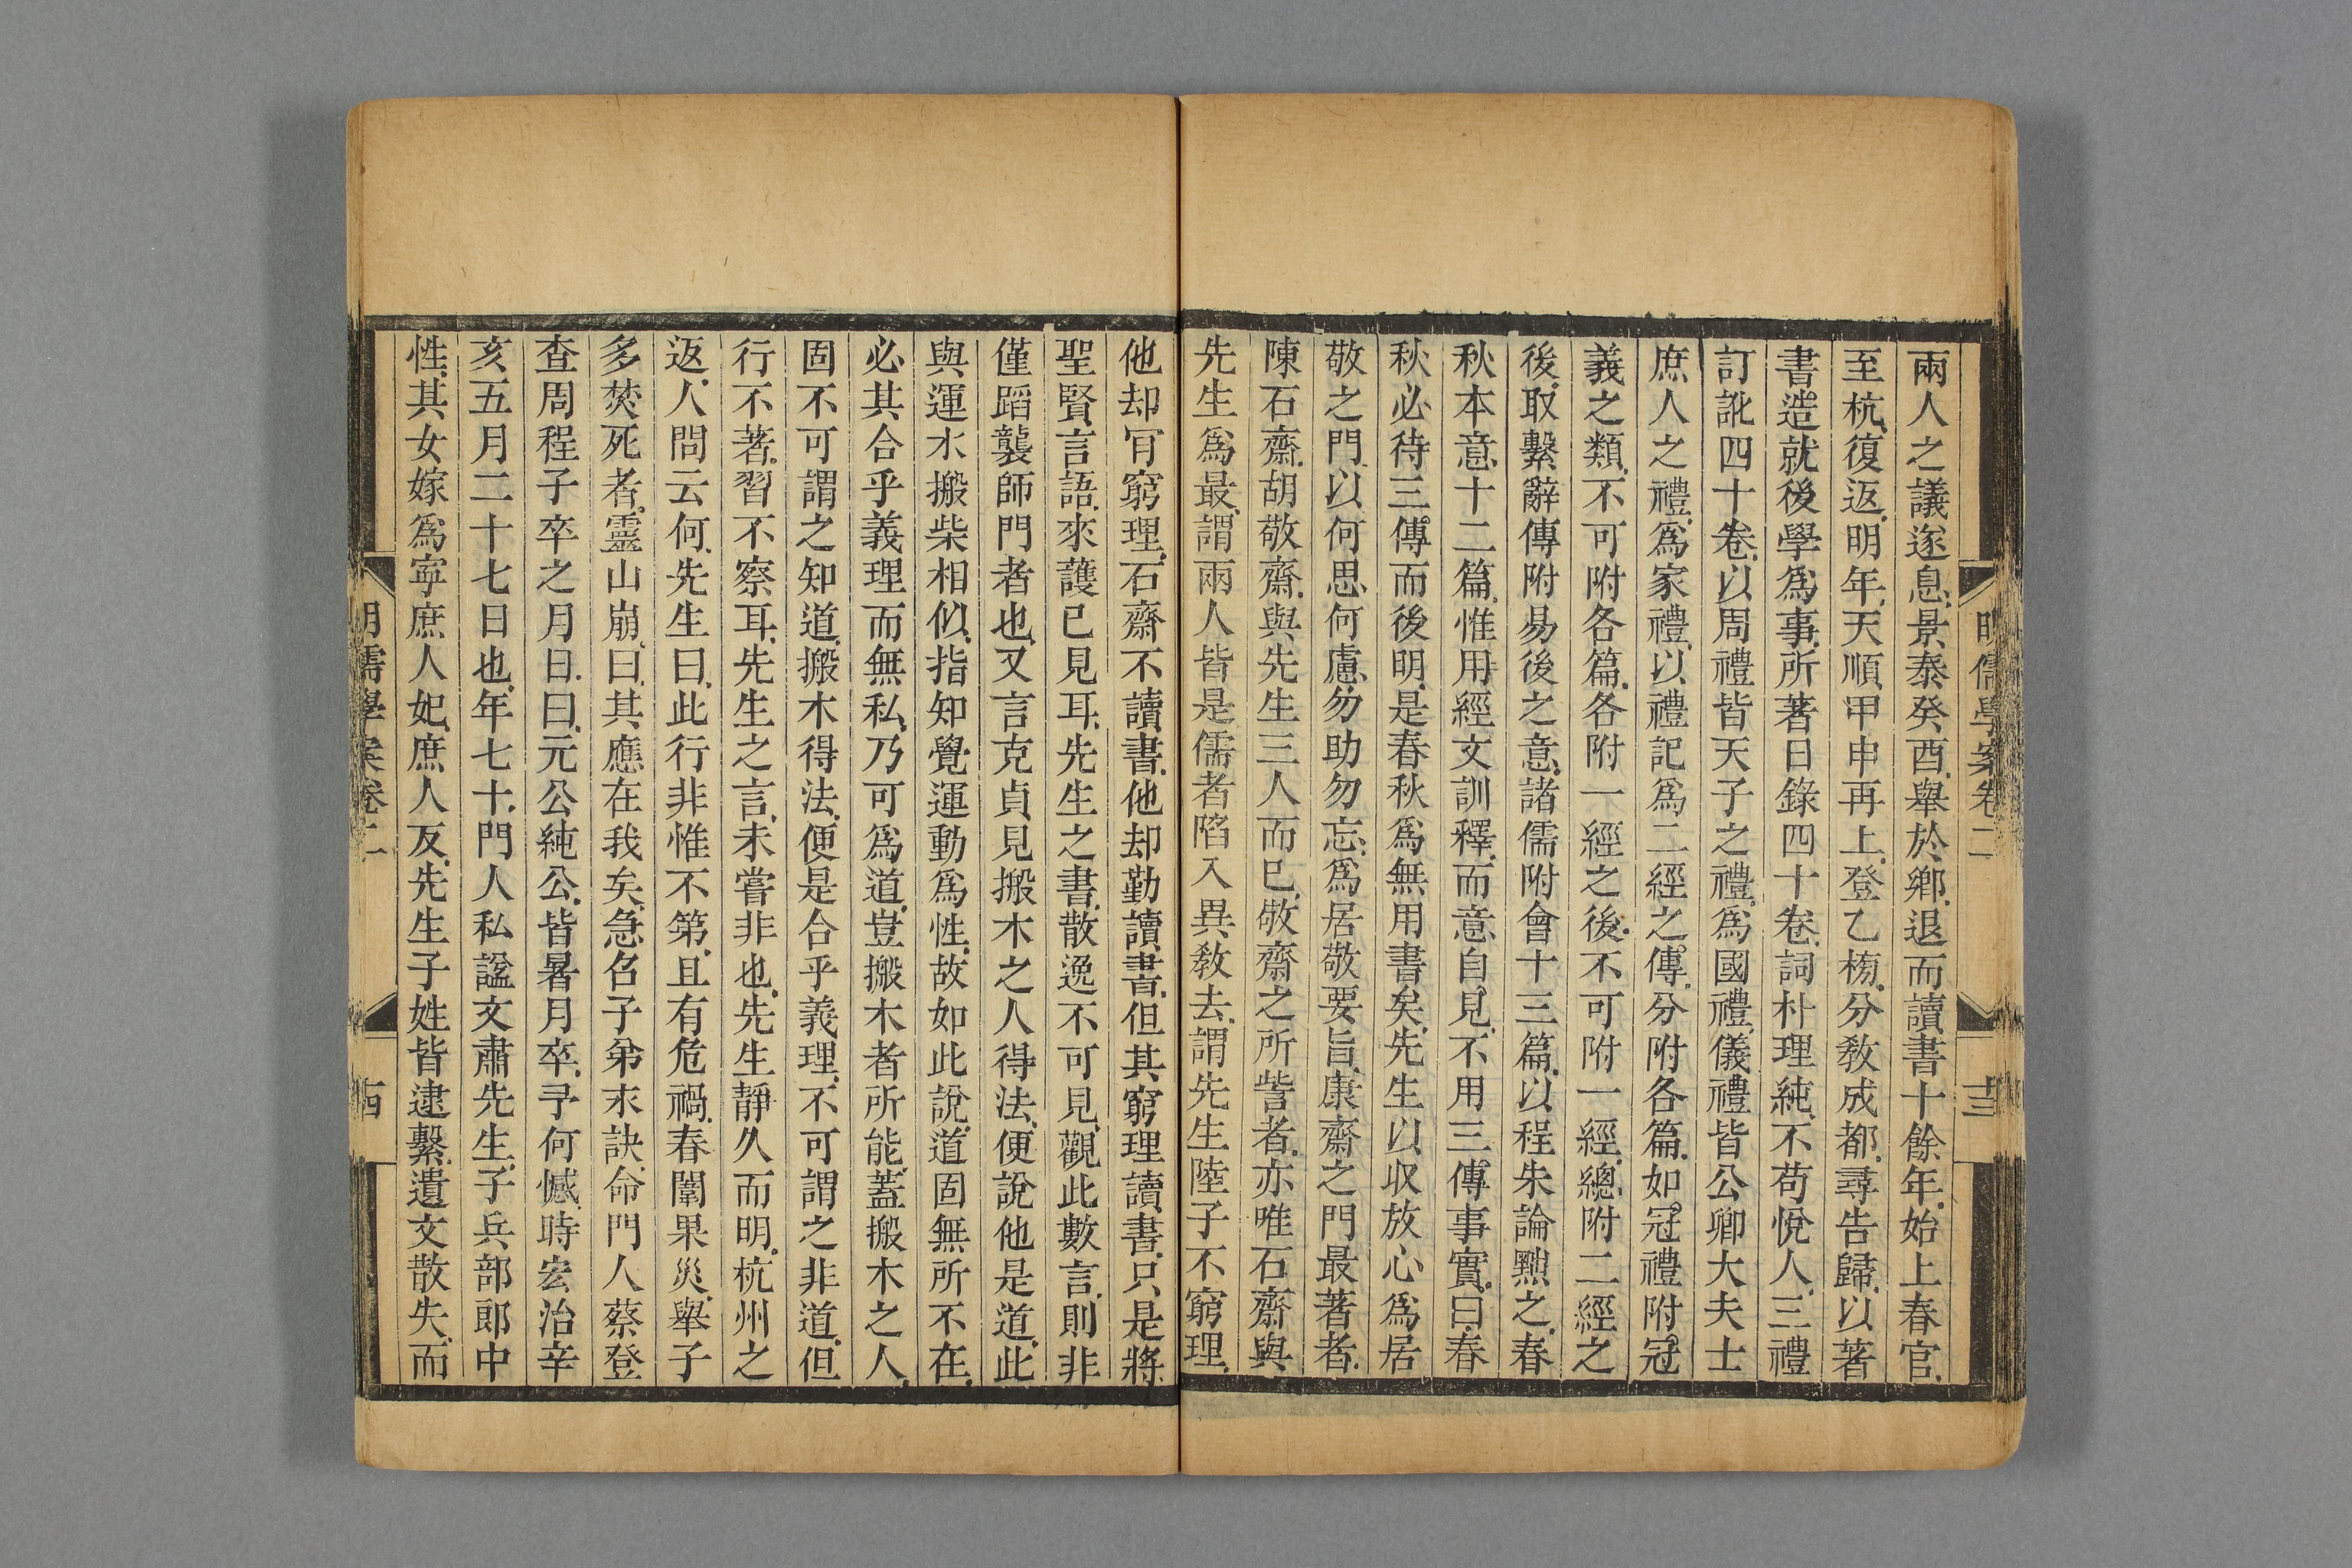 明儒學案卷二
十三
兩人之議遂息景泰癸酉舉於鄉退而讀書十餘年始上春官
至杭復返明年天順甲申再上登乙榜分敎成都尋告歸以著
書造就後學爲事所著日錄四十卷詞朴理純不苟悅人三禮
訂訛四十卷以周禮皆天子之禮爲國禮儀禮皆公卿大夫士
庶人之禮爲家禮以禮記爲二經之傳分附各篇如冠禮附冠
義之類不可附各篇各附一經之後不可附一經總附二經之
後取繫辭傳附易後之意諸儒附會十三篇以程朱論黜之春
秋本意十二篇惟用經文訓釋而意自見不用三傳事實曰春
秋必待三傳而後明是春秋爲無用書矣先生以収放心爲居
敬之門以何思何慮勿助勿忘爲居敬要旨康齋之門最著者
陳石齋胡敬齋與先生三人而已敬齋之所訾者亦唯石齋與
先生爲最謂兩人皆是儒者陷入異敎去謂先生陸子不窮理
他却肎窮理石齋不讀書他却勤讀書但其窮理讀書只是將
聖賢言語來護已見耳先生之書散逸不可見觀此數言則非
僅蹈襲師門者也又言克貞見搬木之人得法便說他是道此
與運水搬柴相似指知覺運動爲性故如此說道固無所不在
必其合乎義理而無私乃可爲道豈搬木者所能蓋搬木之人
固不可謂之知道搬木得法便是合乎義理不可謂之非道但
行不著習不察耳先生之言未嘗非也先生靜久而明杭州之
返人問云何先生曰此行非惟不第且有危禍春闈果災舉子
多焚死者靈山崩曰其應在我矣急召子弟永訣命門人蔡登
查周程子卒之月日曰元公純公皆暑月卒予何憾時宏治辛
亥五月二十七日也年七十門人私諡文肅先生子兵部郎中
性其女嫁爲寧庶人妃庶人反先生子姓皆逮繫遺文散失而
明儒學案卷二
十四